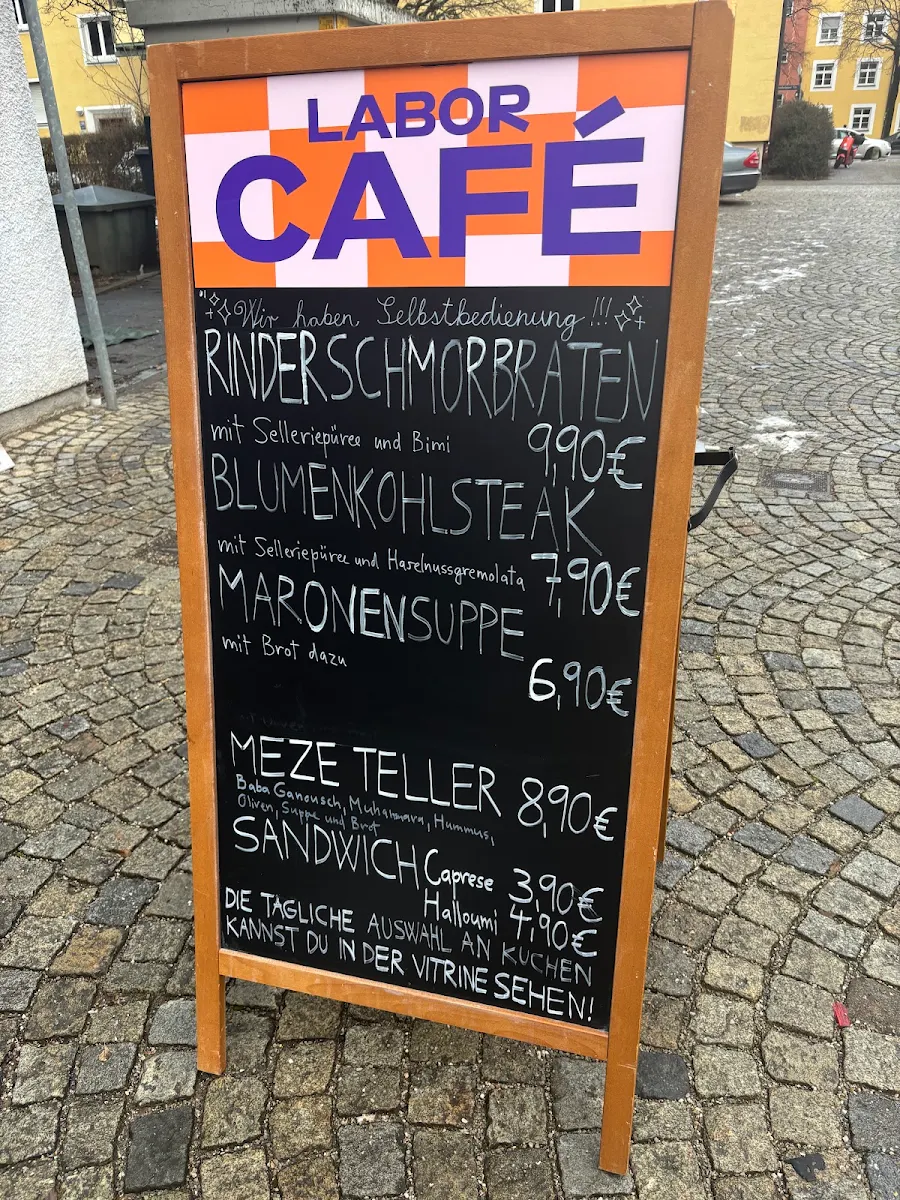 LABOR
CAFÉ
Wir haben Selbstbedienung!!!
RINDERSCHMORBRATEN
mit Selleriepüree und Bimi 9,90€
BLUMENKOHLSTEAK
mit Selleriepüree und Haselnussgremolata 7,90€
MARONENSUPPE
mit Brot dazu 6,90€
MEZE TELLER 8,90€
Baba Ganousch, Muhammara, Hummus,
Oliven, Suppe und Brot
SANDWICH Caprese 3,90€
Halloumi 4,90€
DIE TÄGLICHE AUSWAHL AN KUCHEN
KANNST DU IN DER VITRINE SEHEN!